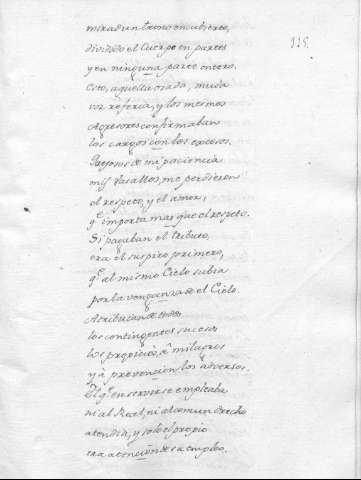 115.
mirad un trono encubierto,
dividido el Cuerpo en partes
y en ninguna parte entero.
Esto, aquella osada, muda
voz referia, y los mesmos
Agresores confirmaban
los cargos con los excesos.
Quejosos de mi paciencia
mis Vasallos, me perdieron
el respeto, y el amor,
q.e importa mas que el respeto.
Si pagaban el tributo,
era el suspiro primero,
q.e al mismo Cielo subia
por la venganza de el Cielo.
Atribuian de todos
los contingentes sucesos
los propicios, â milagros
y â prevencion los adversos.
El q.e en servirse empleaba
ni al Real, ni al comun derecho
atendia, y solo el propio
era atencion de su empleo.